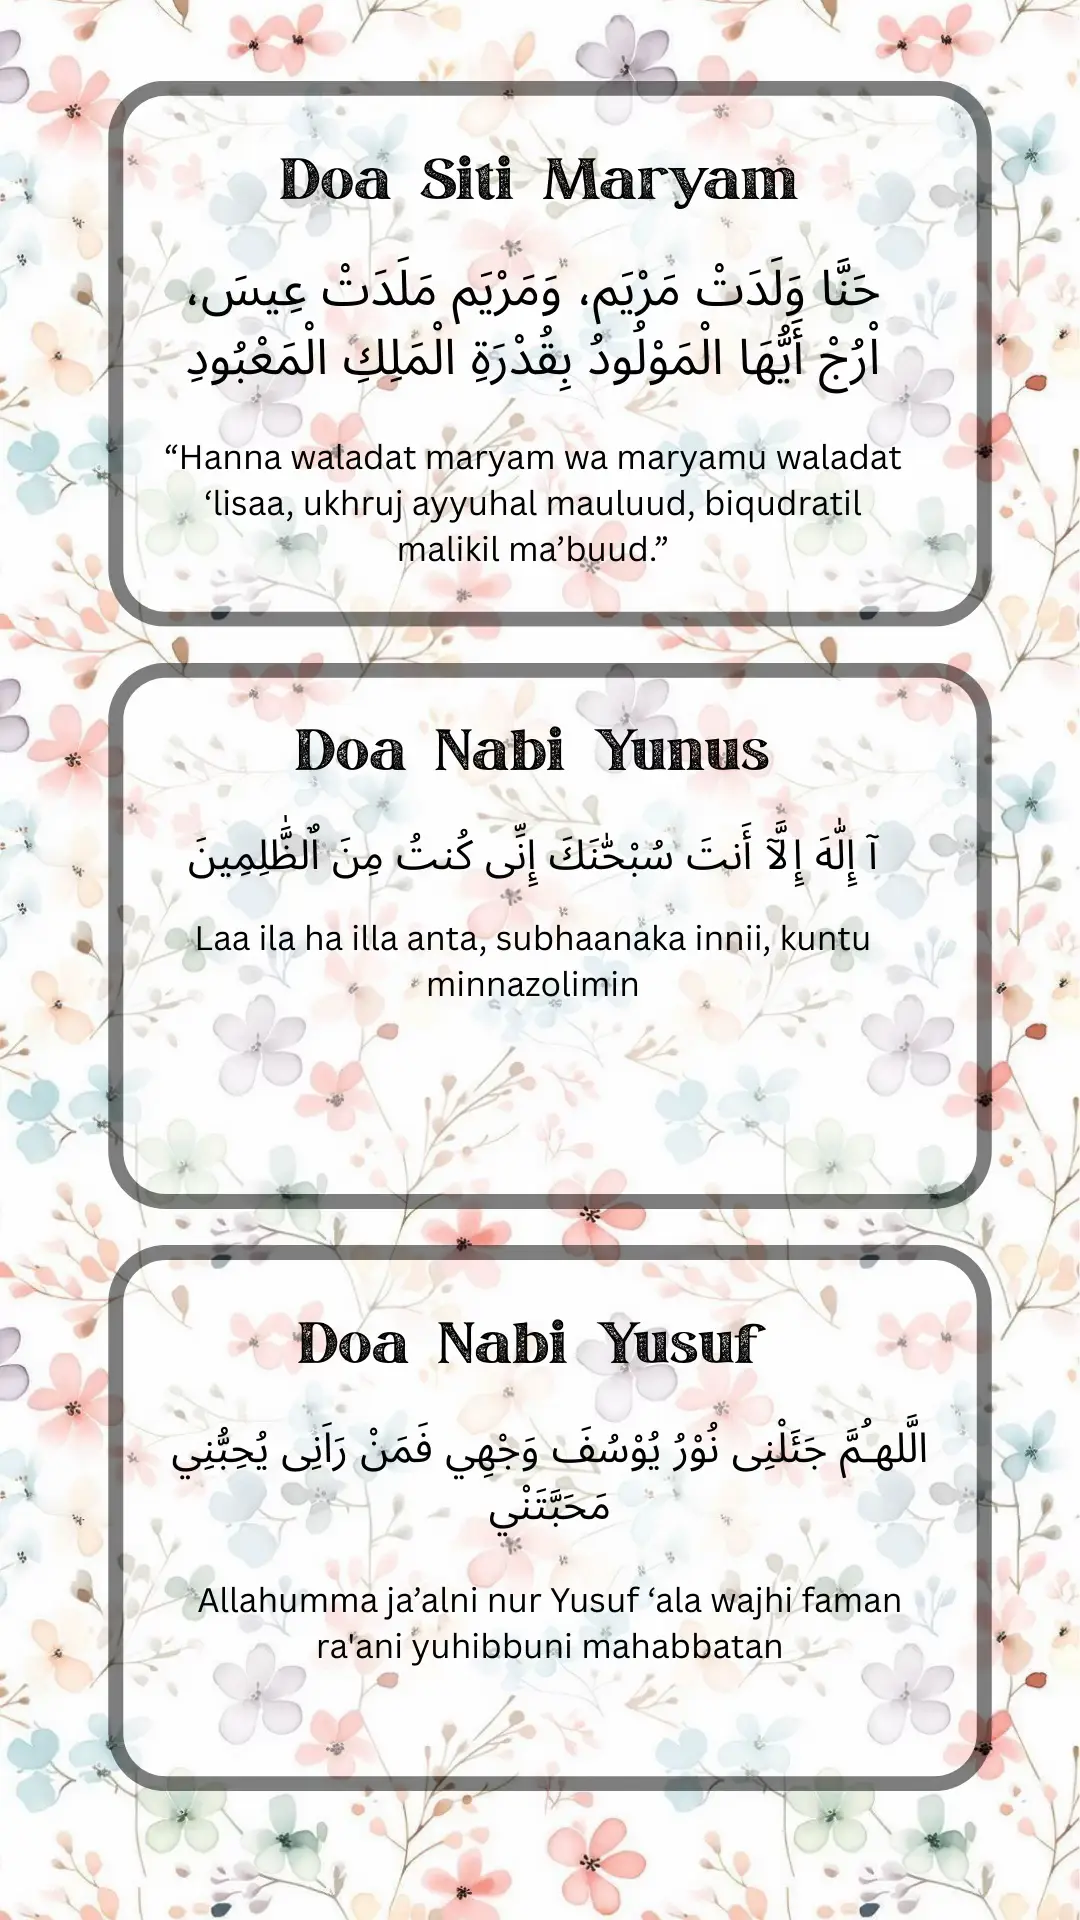 Doa Siti Maryam
حَنَّا وَلَدَتْ مَرْيَم، وَمَرْيَم مَلَدَتْ عِيسَ،
اْرُجْ أَيُّهَا الْمَوْلُودُ بِقُدْرَةِ الْمَلِكِ الْمَعْبُودِ
“Hanna waladat maryam wa maryamu waladat
‘lisaa, ukhruj ayyuhal mauluud, biqudratil
malikil ma’buud.”
Doa Nabi Yunus
آ إِلَٰهَ إِلَّآ أَنتَ سُبْحَٰنَكَ إِنِّى كُنتُ مِنَ ٱلظَّٰلِمِينَ
Laa ila ha illa anta, subhaanaka innii, kuntu
minnazolimin
Doa Nabi Yusuf
الَّلهـُمَّ جَئَلْنِى نُوْرُ يُوْسُفَ وَجْهِي فَمَنْ رَاَنِى يُحِبُّنِي
مَحَبَّتَنْي
Allahumma ja’alni nur Yusuf ‘ala wajhi faman
ra'ani yuhibbuni mahabbatan